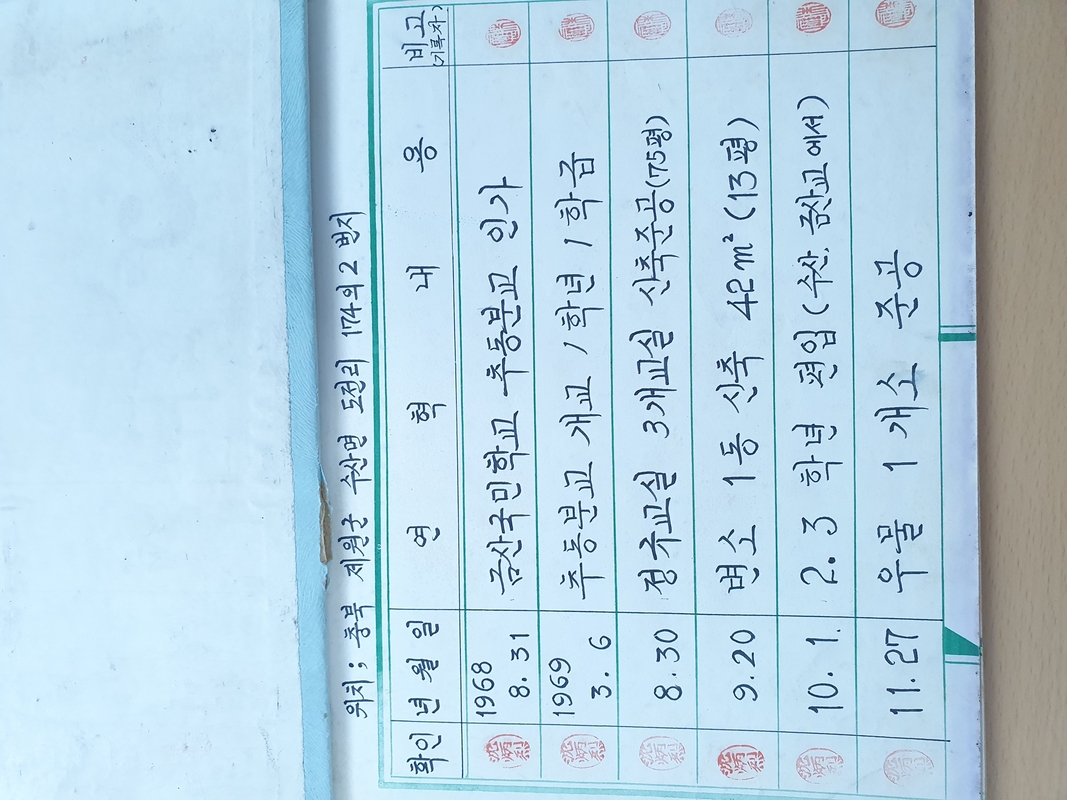 위치; 충북 제원군 수산면 도전리 174의 2 번지
확인 년 월 일 연 혁 내 용 비고 (기록자)
1968 8. 31 금산국민학교 추동분교 인가
1969 3. 6 추동분교 개교 1학년 1학급
8. 30 정규교실 3개교실 신축준공(75평)
9. 20 변소 1동 신축 42m² (13평)
10. 1. 2. 3 학년 편입 (수산, 금산교에서)
11. 27 우물 1 개소 준공